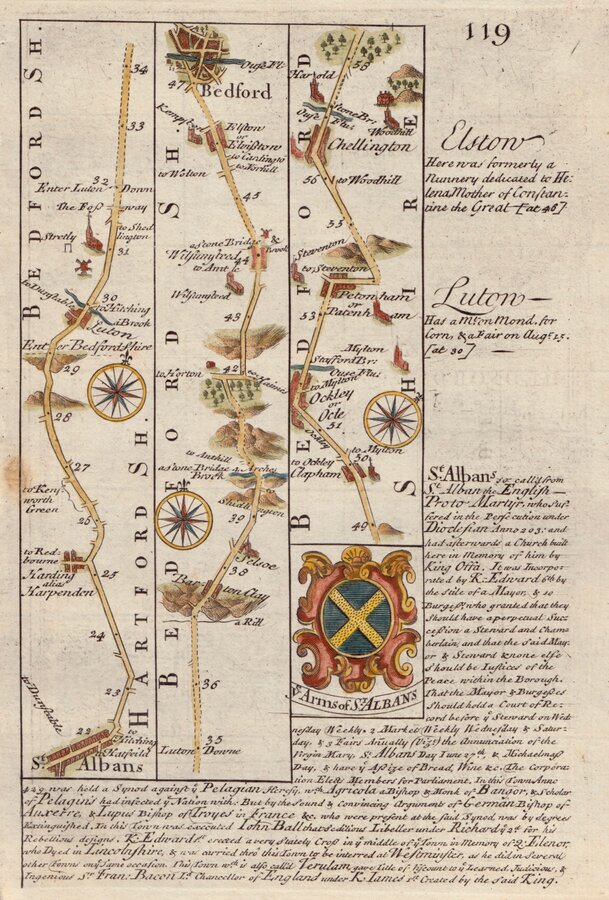 119
BEDFORD SH.
HARTFORD SH.
34
33
32
Enter Luton Down
The Foss way
to Shed
lington
31
Stretly
to Dunstable
30
to Hitching
a Brook
Luton
Enter Bedfordshire
29
28
27
to Kens
worth
Green
26
to Red
bourne
25
Harding
alias
Harpenden
24
23
to Dunstable
22
to
Hitching
to Hatfeild
St. Albans
BEDFORD SH
Ouse Fl:
47
Bedford
Kempsted
Elston
or
Elvisston
to Cardington
to Welton
to Forhill
45
a Stone Bridge &
Brook
44
Wilshamsteed
to Amt
Wilshamsteed
43
to Horton
42
to Haines
to Anthill
a Stone Bridge 4 Arches
Brook
39
Shidlington
Pelsoe
38
Bar
ton Clay
a Rill
36
Luton Downe
BEDFORD SHIRE
58
Harrold
Stone Br:
Ouse Flu:
Woodhill
Chellington
56
to Woodhill
55
Steventon
to Steventon
Petonham
or
Patenham
Mylton
Stafford Br:
Ouse Flu:
to Mylton
Ockley
or
Ocle
51
Ockly
to Mylton
50
to Ockley
Clapham
49
Elstow
Here was formerly a
Nunnery dedicated to He-
lena Mother of Constan-
tine the Great [at 46]
Luton
Has a Mt. on Mond. for
Corn, & a Fair on Augt. 25.
[at 30]
St. Albans
so call'd from
St. Alban the English
Proto Martyr, who suf
fered in the Persecution under
Dioclesian Anno 293: and
had afterwards a Church built
here in Memory of him by
King Offa. It was Incorpo
rated by K: Edward 6th by
the stile of a Mayor, & 10
Burgesses, who granted that they
Should have a perpetual Suc
cession a Steward and Cham
berlain, and that the said May
or & Steward & none else
should be Iustices of the
Peace within the Borough.
That the Mayor & Burgesses
Should hold a Court of Re-
cord before ye Steward on Wed
ye Arms of St ALBANS
nesday Weekly, 2 Market Weekly Wednesday & Satur-
day, & 3 Fairs Anually (Vizt.) the Anunciation of the
Virgin Mary, St. Albans Day Iune 17th, & Michaelmass
Day. & have ye Assize of Bread, Wine &c. The Corpora
tion Elect Members for Parliament. In this Town Anno
429 was held a Synod against ye Pelagian Heresy, wth. Agricola a Bishop & Monk of Bangor, & Scholar
of Pelagius had infected ye Nation with. But by the Sound & Convincing Arguments of German Bishop of
Auxetre, & Lupus Bishop of Troyes in France &c. who were present at the said Synod, was by degrees
Extinguished. In this Town was executed Iohn Ball that seditious Libeller under Richard ye 2d. for his
Rebellious designs. K: Edward 1st. erected a very Stately Cross in ye middle of ye Town in Memory of Q. Elenor,
who Dyed in Lincolnshire, & was carried thro' this Town to be interred at Westminster, as he did in several
other Towns on ye same occasion. This Town wch. is also called Verulam gave title of Viscount to ye Learned, Iudicious, &
Ingenious Sr. Fran: Bacon Ld. Chancellor of England under K. Iames 1st. Created by the said King.